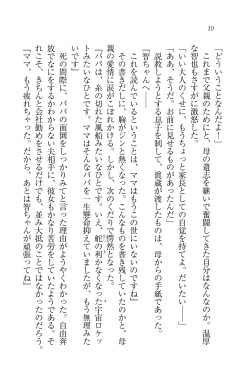 10
「どういうことなんだよー」
これまで父親のために、母の遺志を継いで奮闘してきた自分はなんなのか。温厚
な智也も、さすがに腹が立った。
「いい大人のくせに、もうちょっと家長としての自覚を持てよ。だいたい――」
「ああ、そうだ。お前に見せるものがあった」
説教しようとする息子を制して、眞蔵が渡したものは、母からの手紙であった。
「智ちゃんへ――
これを読んでいるということは、ママはもうこの世にいないのですね」
その書きだしに、胸がジンと熱くなった。こんなものを書き残していたのかと、母
親の愛情に涙がこぼれかける。しかし、次のくだりで愕然となった。
「パパは、糸の切れた風船みたいなひとです。いえ、舵の利かなくなった宇宙ロケッ
トみたいなひとです。ママはそんなパパを、一生懸命抑えていましたが、もう無理みた
いです」
死の間際に、パパの面倒をしっかりみてと言った理由がようやくわかった。自由奔
放でなにをするかわからない夫相手に、彼女もかなり苦労をしていたようである。そ
れこそ、きちんと会社勤めをさせるだけでも、並み大抵のことではなかったのだろう。
「ママ、もう疲れちゃった。だから、あとは智ちゃんが頑張ってね」